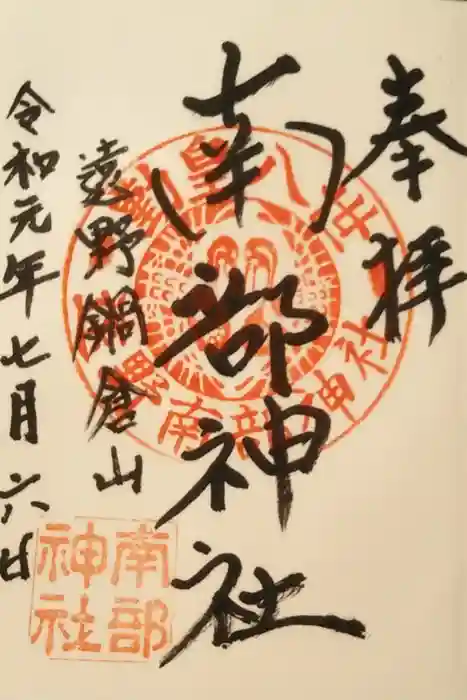 奉拝
南部神社
遠野鍋倉山
令和元年七月六日
勤皇八世
南部神社
南部
神社